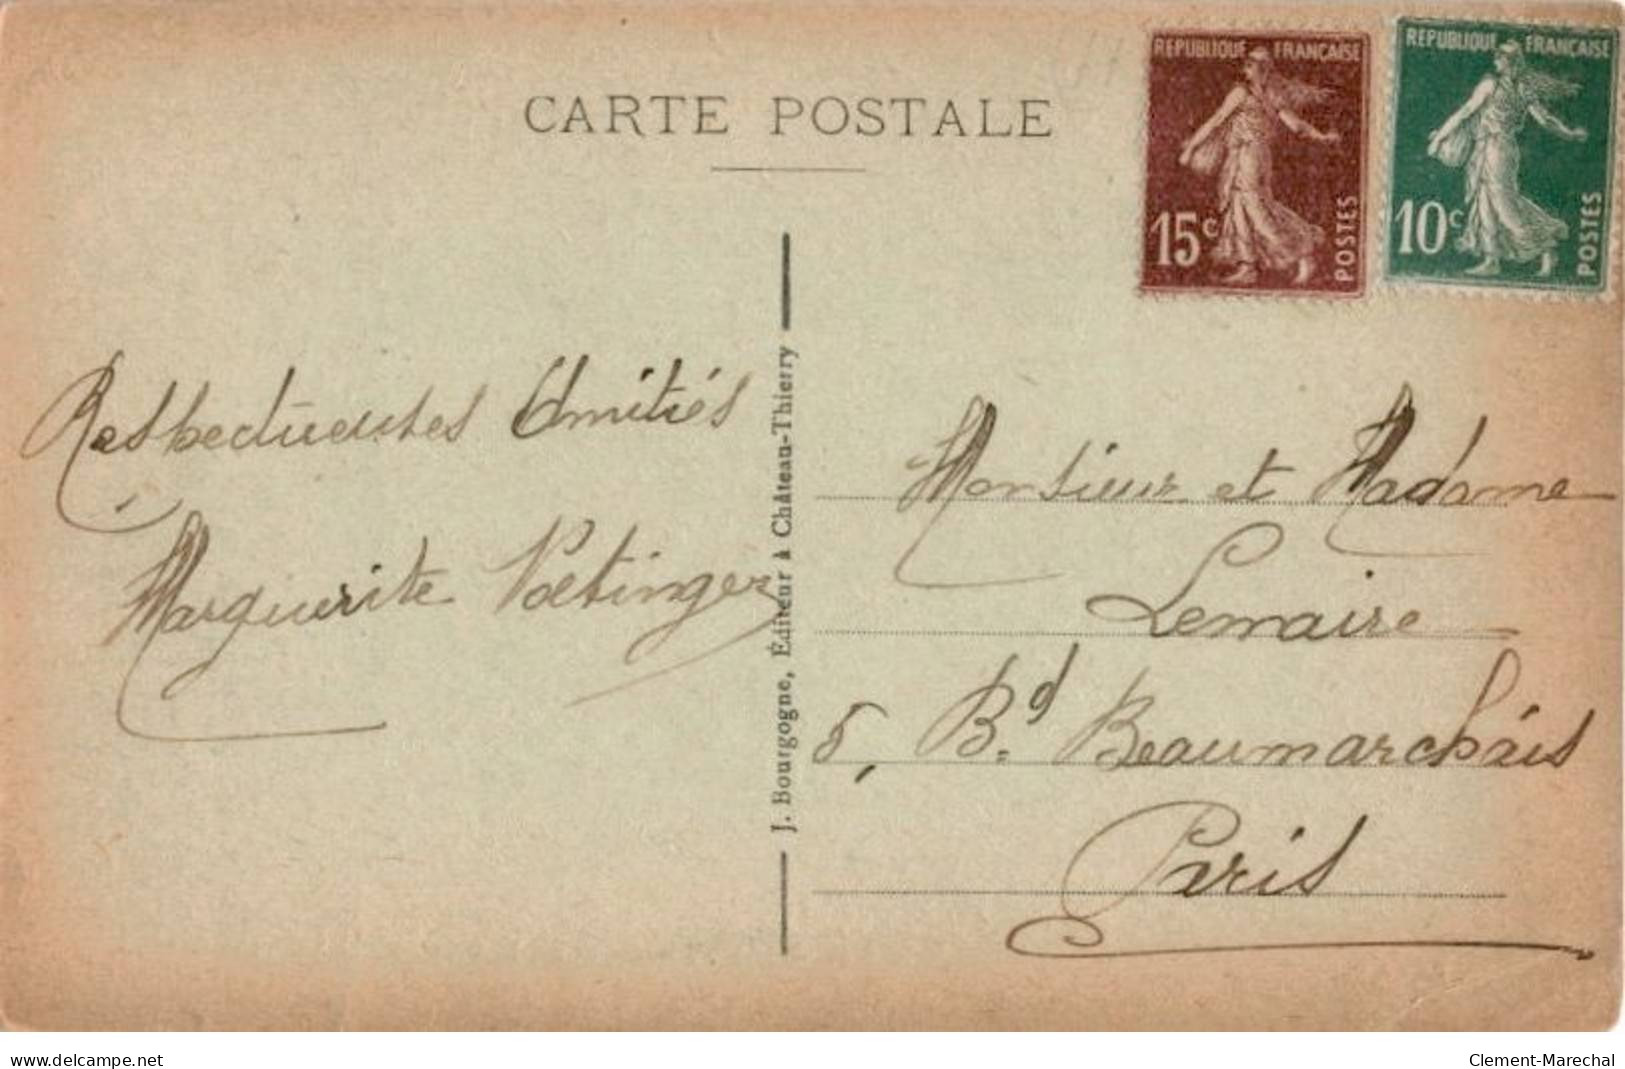 CARTE POSTALE
REPUBLIQUE FRANÇAISE
15c
POSTES
REPUBLIQUE FRANÇAISE
10c
POSTES
Respectueuses Amitiés
Marguerite Voetinger
J. Bourgogne, Éditeur à Château-Thierry
Monsieur et Madame
Lemaire
5, Bd. Beaumarchais
Paris
www.delcampe.net
Clement-Marechal